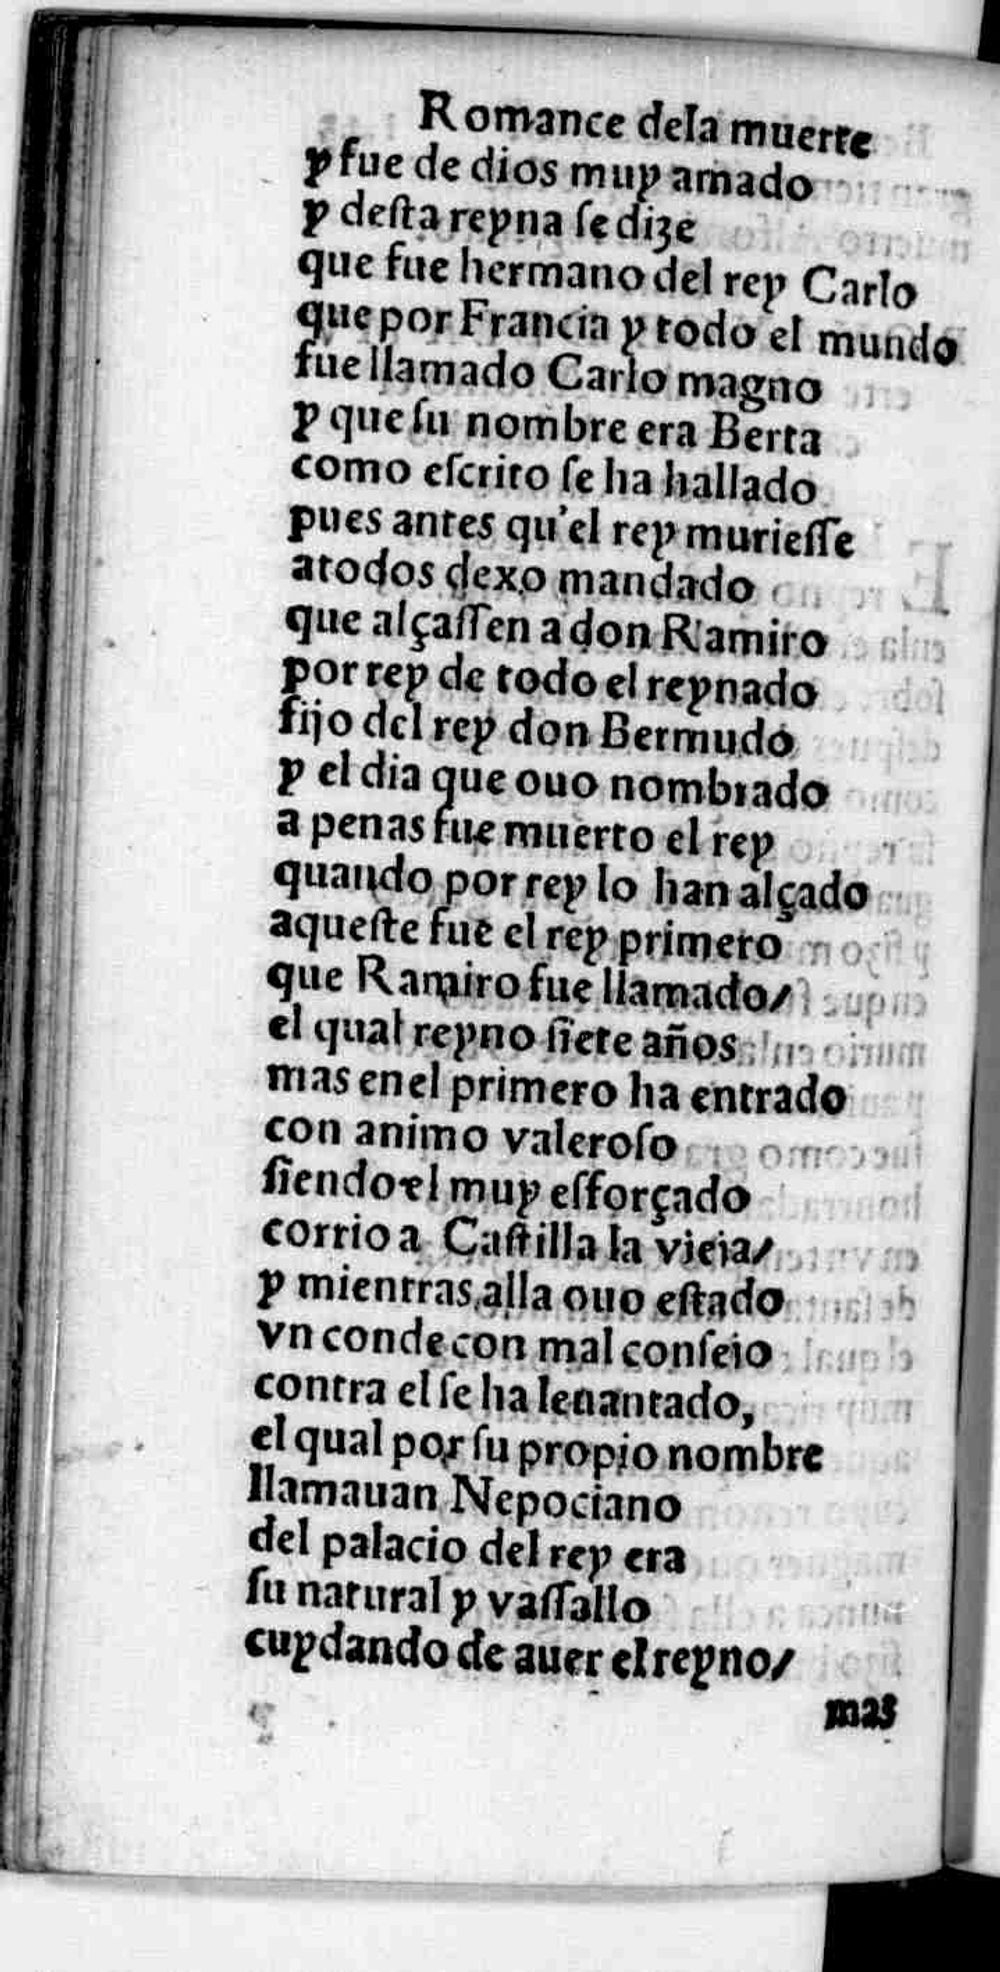 Romance dela muerte
y fue de dios muy amado
y desta reyna se dize
que fue hermano del rey Carlo
que por Francia y todo el mundo
fue llamado Carlo magno
y que su nombre era Berta
como escrito se ha hallado
pues antes qu'el rey muriesse
atodos dexo mandado
que alçassen a don Ramiro
por rey de todo el reynado
fijo del rey don Bermudo
y el dia que ouo nombrado
a penas fue muerto el rey
quando por rey lo han alçado
aqueste fue el rey primero
que Ramiro fue llamado/
el qual reyno siete años
mas enel primero ha entrado
con animo valeroso
siendo el muy esforçado
corrio a Castilla la vieja/
y mientras alla ouo estado
vn conde con mal conseio
contra el se ha leuantado,
el qual por su propio nombre
llamauan Nepociano
del palacio del rey era
su natural y vassallo
cuydando de auer el reyno/
mas